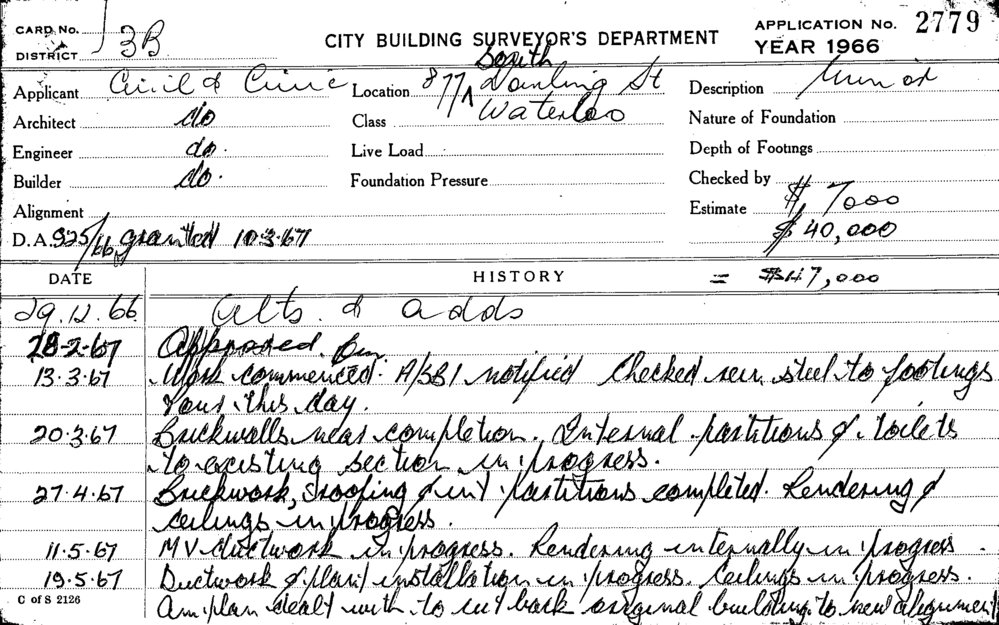 CARD No.
DISTRICT
3B
CITY BUILDING SURVEYOR'S DEPARTMENT
APPLICATION No. 2779
YEAR 1966
Applicant Civil & Civic
Location 877A South Dowling St
Waterloo
Description Minor
Architect do
Class
Nature of Foundation
Engineer do.
Live Load
Depth of Footings
Builder do.
Foundation Pressure
Checked by
Alignment
Estimate $ 7000
D.A. 925/66 granted 10.3.67
$ 40,000
DATE
HISTORY
= $47,000
29.12.66 Alts. & adds
28-2-67 Approved.
13.3.67 Work commenced. A/SB1 notified Checked steel to footings
this day.
20.3.67 Brickwalls near completion. Internal partitions & toilets
to existing section in progress.
27.4.67 Brickwork, roofing & int partitions completed. Rendering &
ceilings in progress.
11.5.67 MV ductwork in progress. Rendering internally in progress.
19.5.67 Ductwork & plant installation in progress. Ceilings in progress.
Am plan dealt with to cut back original building to new alignment
C of S 2126